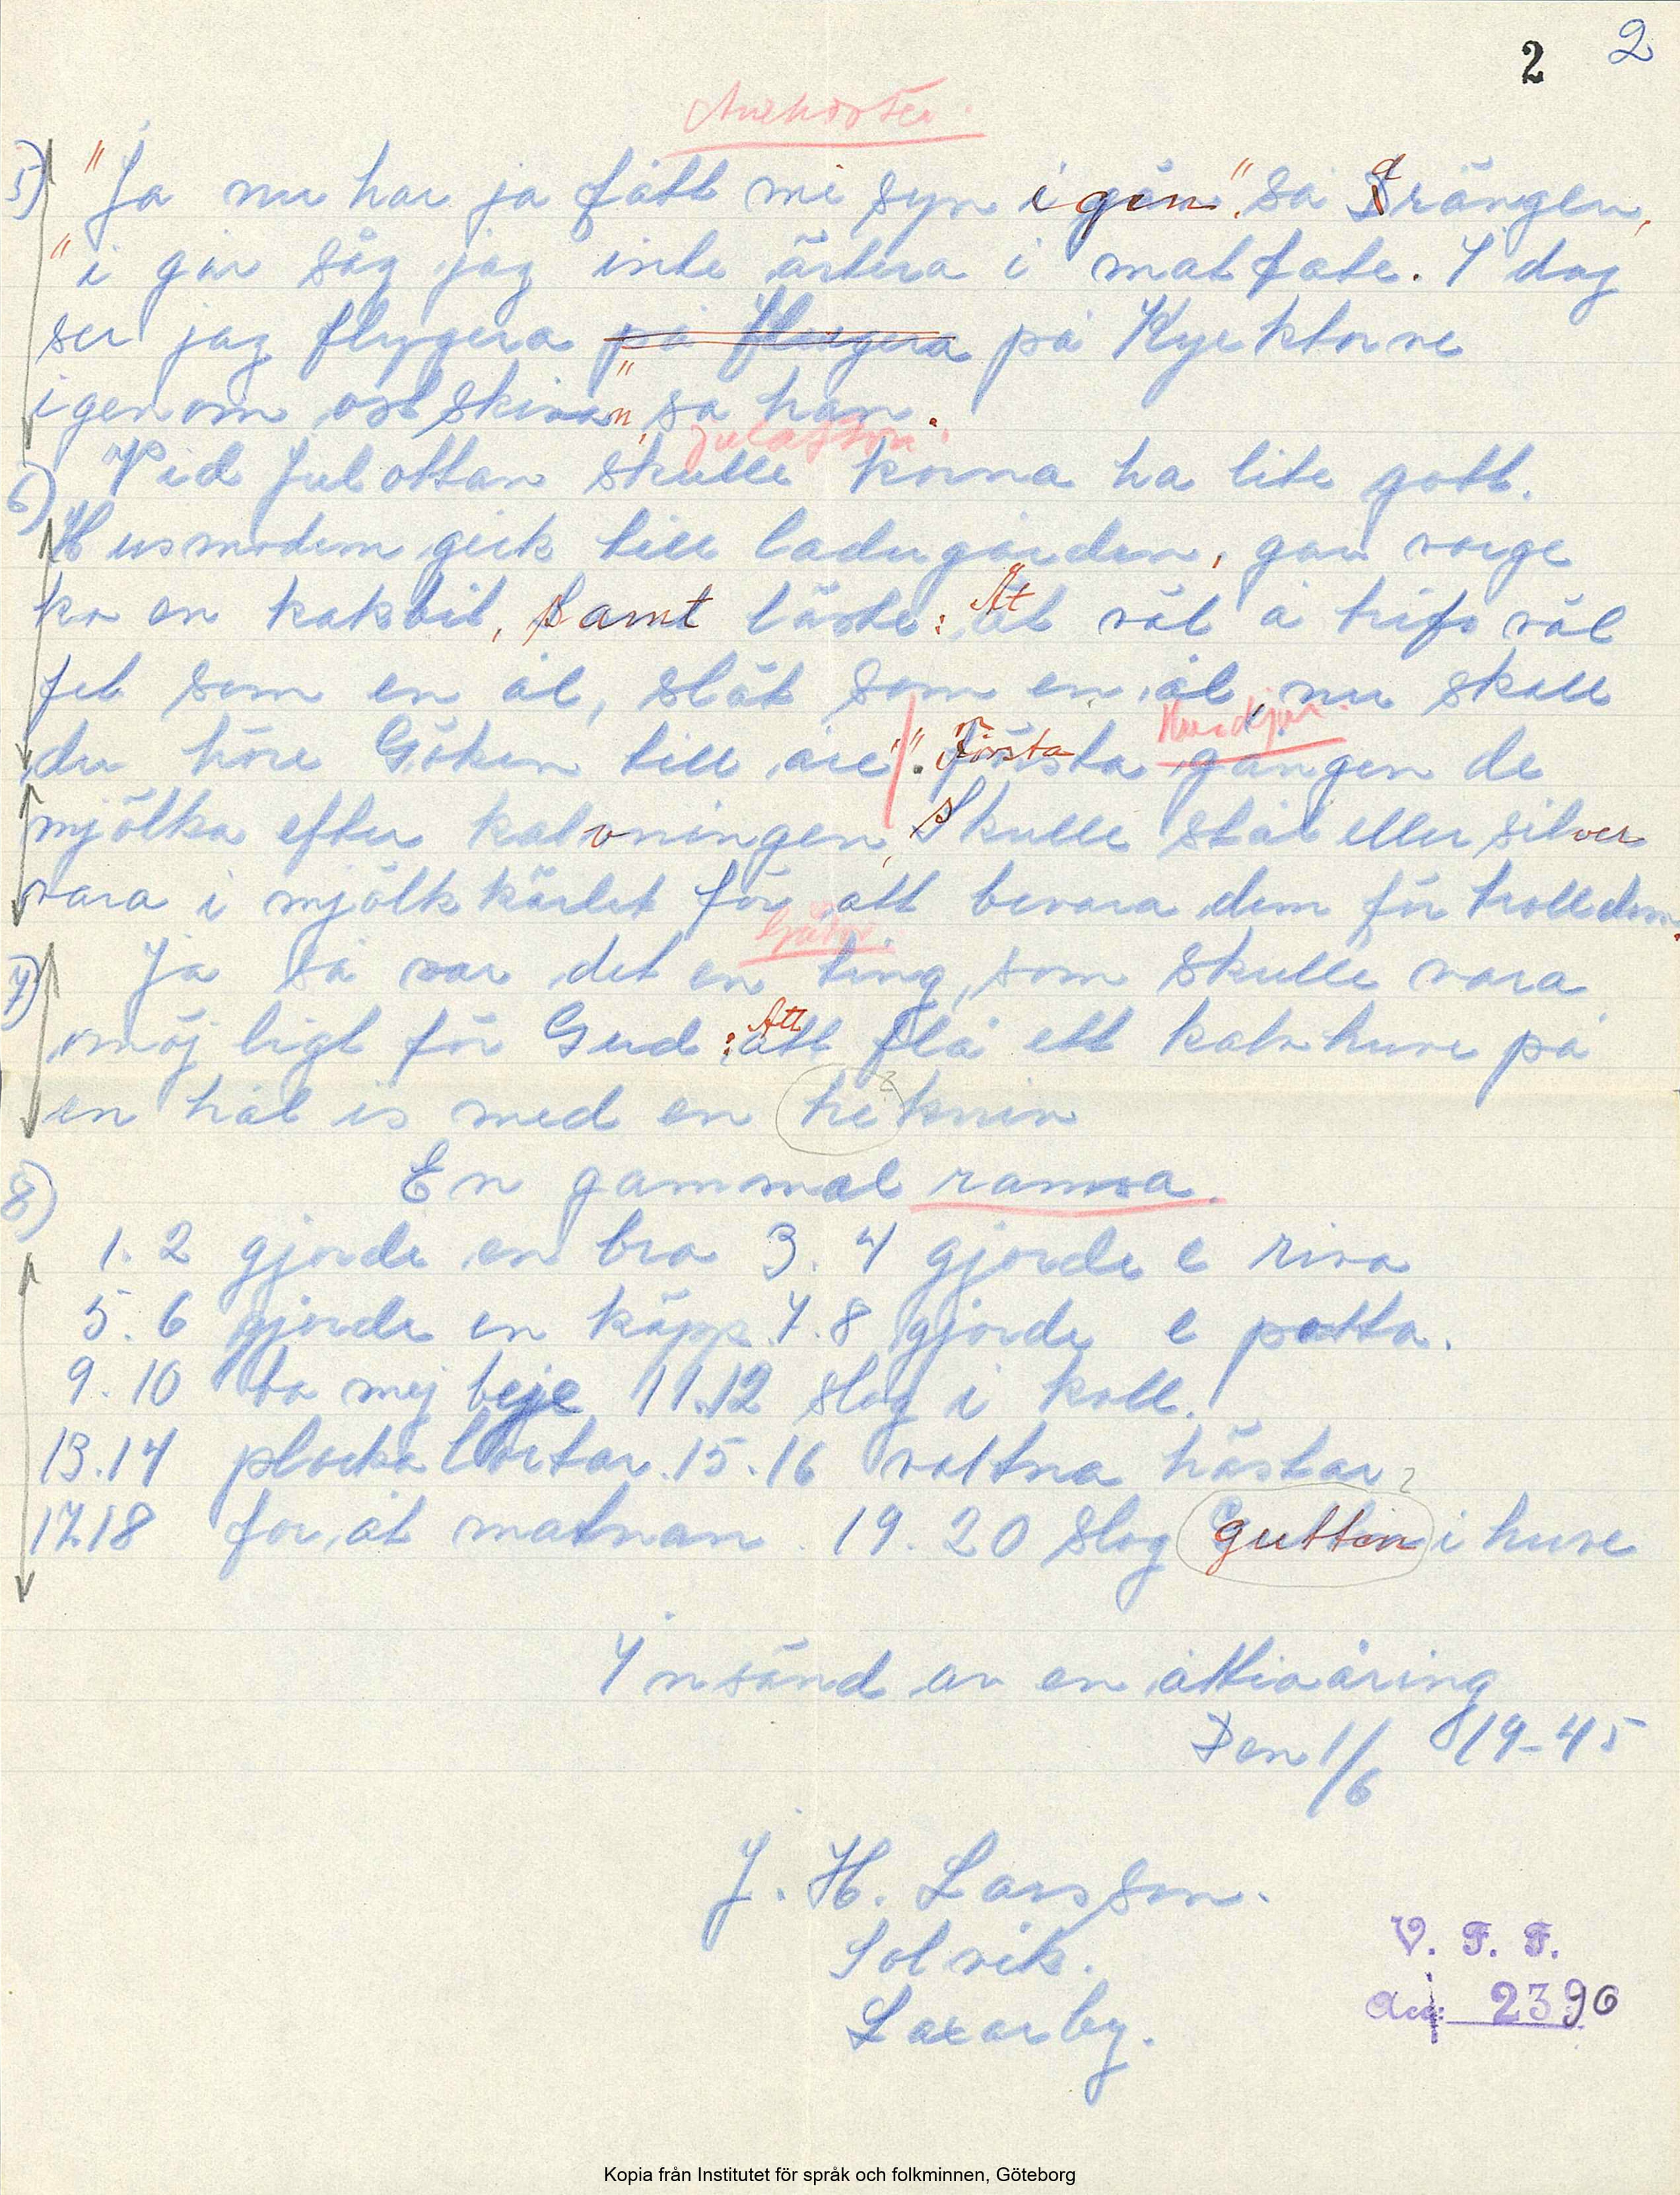 2 2
Anekdoter.
5) "Ja nu har ja fått mi syn igen", sa drängen,
"i går såg jag inte ärtera i matfate. I dag
ser jag flygera på flugera på Kyrktorne
igenom ostskivan", sa han.
Julafton.
6) Vid Julottan skulle korna ha lite gott.
Husmodern gick till ladugården, gav varge
ko en kakbit, samt läste: Ät väl å trifs väl
fet som en ål, slät som en ål, nu skall
Husdjur.
du höre Göken till åre". Första gången de
mjölka efter kalvningen, skulle stål eller silver
vara i mjölkkärlet för att bevara dem för trolldom.
7) Ja så var det en ting, som skulle vara
omöjligt för Gud: Att flå ett kalvhuve på
en hål is med en treknin
8) En gammal ramsa.
1. 2 gjorde en bro 3. 4 gjorde e riva
5. 6 gjorde en käpp. 7. 8 gjorde e potta.
9. 10 to mej beje 11.12 slog i koll.
13.14 plocka lortar. 15.16 vattna hästar
17.18 for åt matnan. 19. 20 slog gutten i huve
Insänd av en åttioåring
Den 1/6 19-45
J. H. Larsson.
Solvik.
Laxarby.
V. F. F.
Acc: 2390
Kopia från Institutet för språk och folkminnen, Göteborg